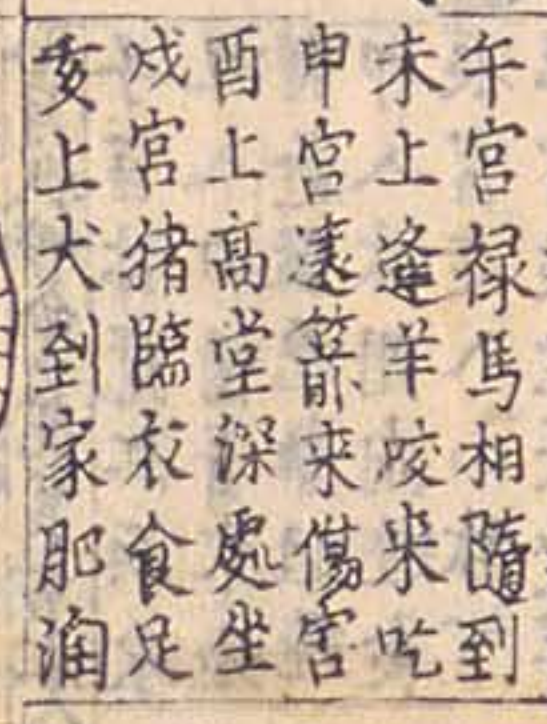 午宫禄馬相隨到
未上逢羊咬来吃
申宫遠箭来傷害
酉上髙堂深處坐
戍宫猪臨衣食足
亥上犬到家肥润